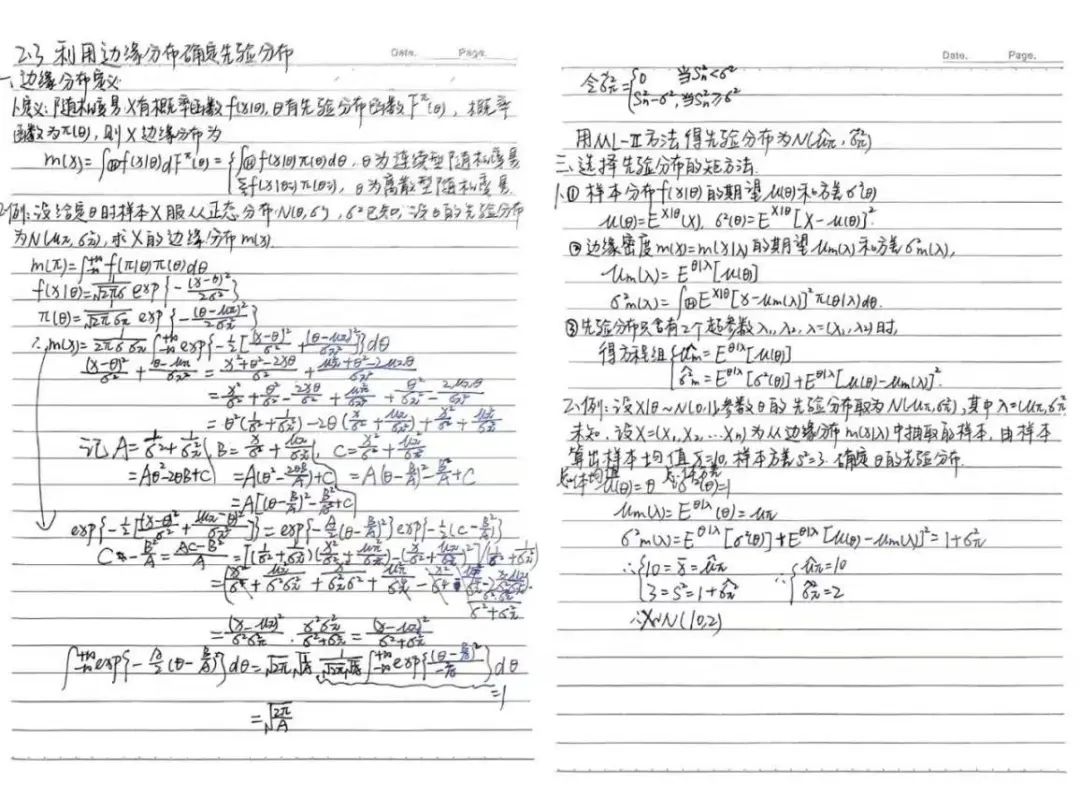 2.3 利用边缘分布确定先验分布
Date. Page.
一、边缘分布定义
1.定义:随机变易X有概率函数f(x|θ),θ有先验分布函数F^π(θ),概率
函数为π(θ),则X边缘分布为
m(x)=∫_Θ f(x|θ)dF^π(θ)={∫_Θ f(x|θ)π(θ)dθ,θ为连续型随机变易
Σf(x|θi)π(θi),θ为离散型随机变易
2.例:设给定θ时样本X服从正态分布N(θ,σ²),σ²已知,设θ的先验分布
为N(μπ,σπ²),求X的边缘分布m(x).
m(π)=∫_{-∞}^{+∞} f(π|θ)π(θ)dθ
f(x|θ)=1/(√2π σ) exp{-(x-θ)²/2σ²}
π(θ)=1/(√2π σπ) exp{-(θ-μπ)²/2σπ²}
∴m(x)=1/(2πσσπ) ∫_{-∞}^{+∞} exp{-1/2[(x-θ)²/σ²+(θ-μπ)²/σπ²]}dθ
(x-θ)²/σ²+(θ-μπ)/σπ²=(x²+θ²-2xθ)/σ²+(μπ²+θ²-2μπθ)/σπ²
=x²/σ²+θ²/σ²-2xθ/σ²+μπ²/σπ²+θ²/σπ²-2μπθ/σπ²
=θ²(1/σ²+1/σπ²)-2θ(x/σ²+μπ/σπ²)+x²/σ²+μπ²/σπ²
记A=1/σ²+1/σπ²,B=x/σ²+μπ/σπ²,C=x²/σ²+μπ²/σπ²
=Aθ²-2θB+C=A(θ²-2θB/A)+C=A(θ-B/A)²-B²/A+C
=A[(θ-B/A)²-B²/A+C
exp{-1/2[(x-θ)²/σ²+(μπ-θ)²/σπ²]}=exp{-A/2(θ-B/A)²}exp{-1/2(C-B²/A)}
C-B²/A=(AC-B²)/A=[(1/σ²+1/σπ²)(x²/σ²+μπ²/σπ²)-(x/σ²+μπ/σπ²)²]/(1/σ²+1/σπ²)
=(x-μπ)²/σ²σπ²·σ²σπ²/(σ²+σπ²)=(x-μπ)²/(σ²+σπ²)
∫_{-∞}^{+∞} exp{-A/2(θ-B/A)²}dθ=√2π √(1/A) 1/(√2π √(1/A)) ∫_{-∞}^{+∞} exp{(θ-B/A)²/(-2/A)}dθ
=1
=√(2π/A)
Date. Page.
令σ̂π²={0 当Sn²<σ²
Sn²-σ²,当Sn²≥σ²
用ML-Ⅱ方法得先验分布为N(μ̂π,σ̂π²)
三、选择先验分布的矩方法.
1.① 样本分布f(x|θ)的期望μ(θ)和方差σ²(θ)
μ(θ)=E^{X|θ}(X),σ²(θ)=E^{X|θ}[X-μ(θ)]².
②边缘密度m(x)=m(x|λ)的期望μm(λ)和方差σm²(λ),
μm(λ)=E^{θ|λ}[μ(θ)]
σm²(λ)=∫_Θ E^{X|θ}[x-μm(λ)]²π(θ|λ)dθ.
③先验分布只含有2个超参数λ1,λ2,λ=(λ1,λ2)时,
得方程组{μ̂m=E^{θ|λ}[μ(θ)]
σ̂m²=E^{θ|λ}[σ²(θ)]+E^{θ|λ}[μ(θ)-μm(λ)]².
2.例:设X|θ~N(θ,1),参数θ的先验分布取为N(μπ,σπ²),其中λ=(μπ,σπ²)
未知.设X=(X1,X2,…Xn)为从边缘分布m(x|λ)中抽取的样本,由样本
算出样本均值x̄=10,样本方差s²=3.确定θ的先验分布.
总体均值μ(θ)=θ 总体方差σ²(θ)=1
μm(λ)=E^{θ|λ}(θ)=μπ
σ²m(λ)=E^{θ|λ}[σ²(θ)]+E^{θ|λ}[μ(θ)-μm(λ)]²=1+σπ²
∴{10=x̄=μ̂π ∴{μ̂π=10
3=s²=1+σ̂π² σ̂π²=2
∴X~N(10,2)